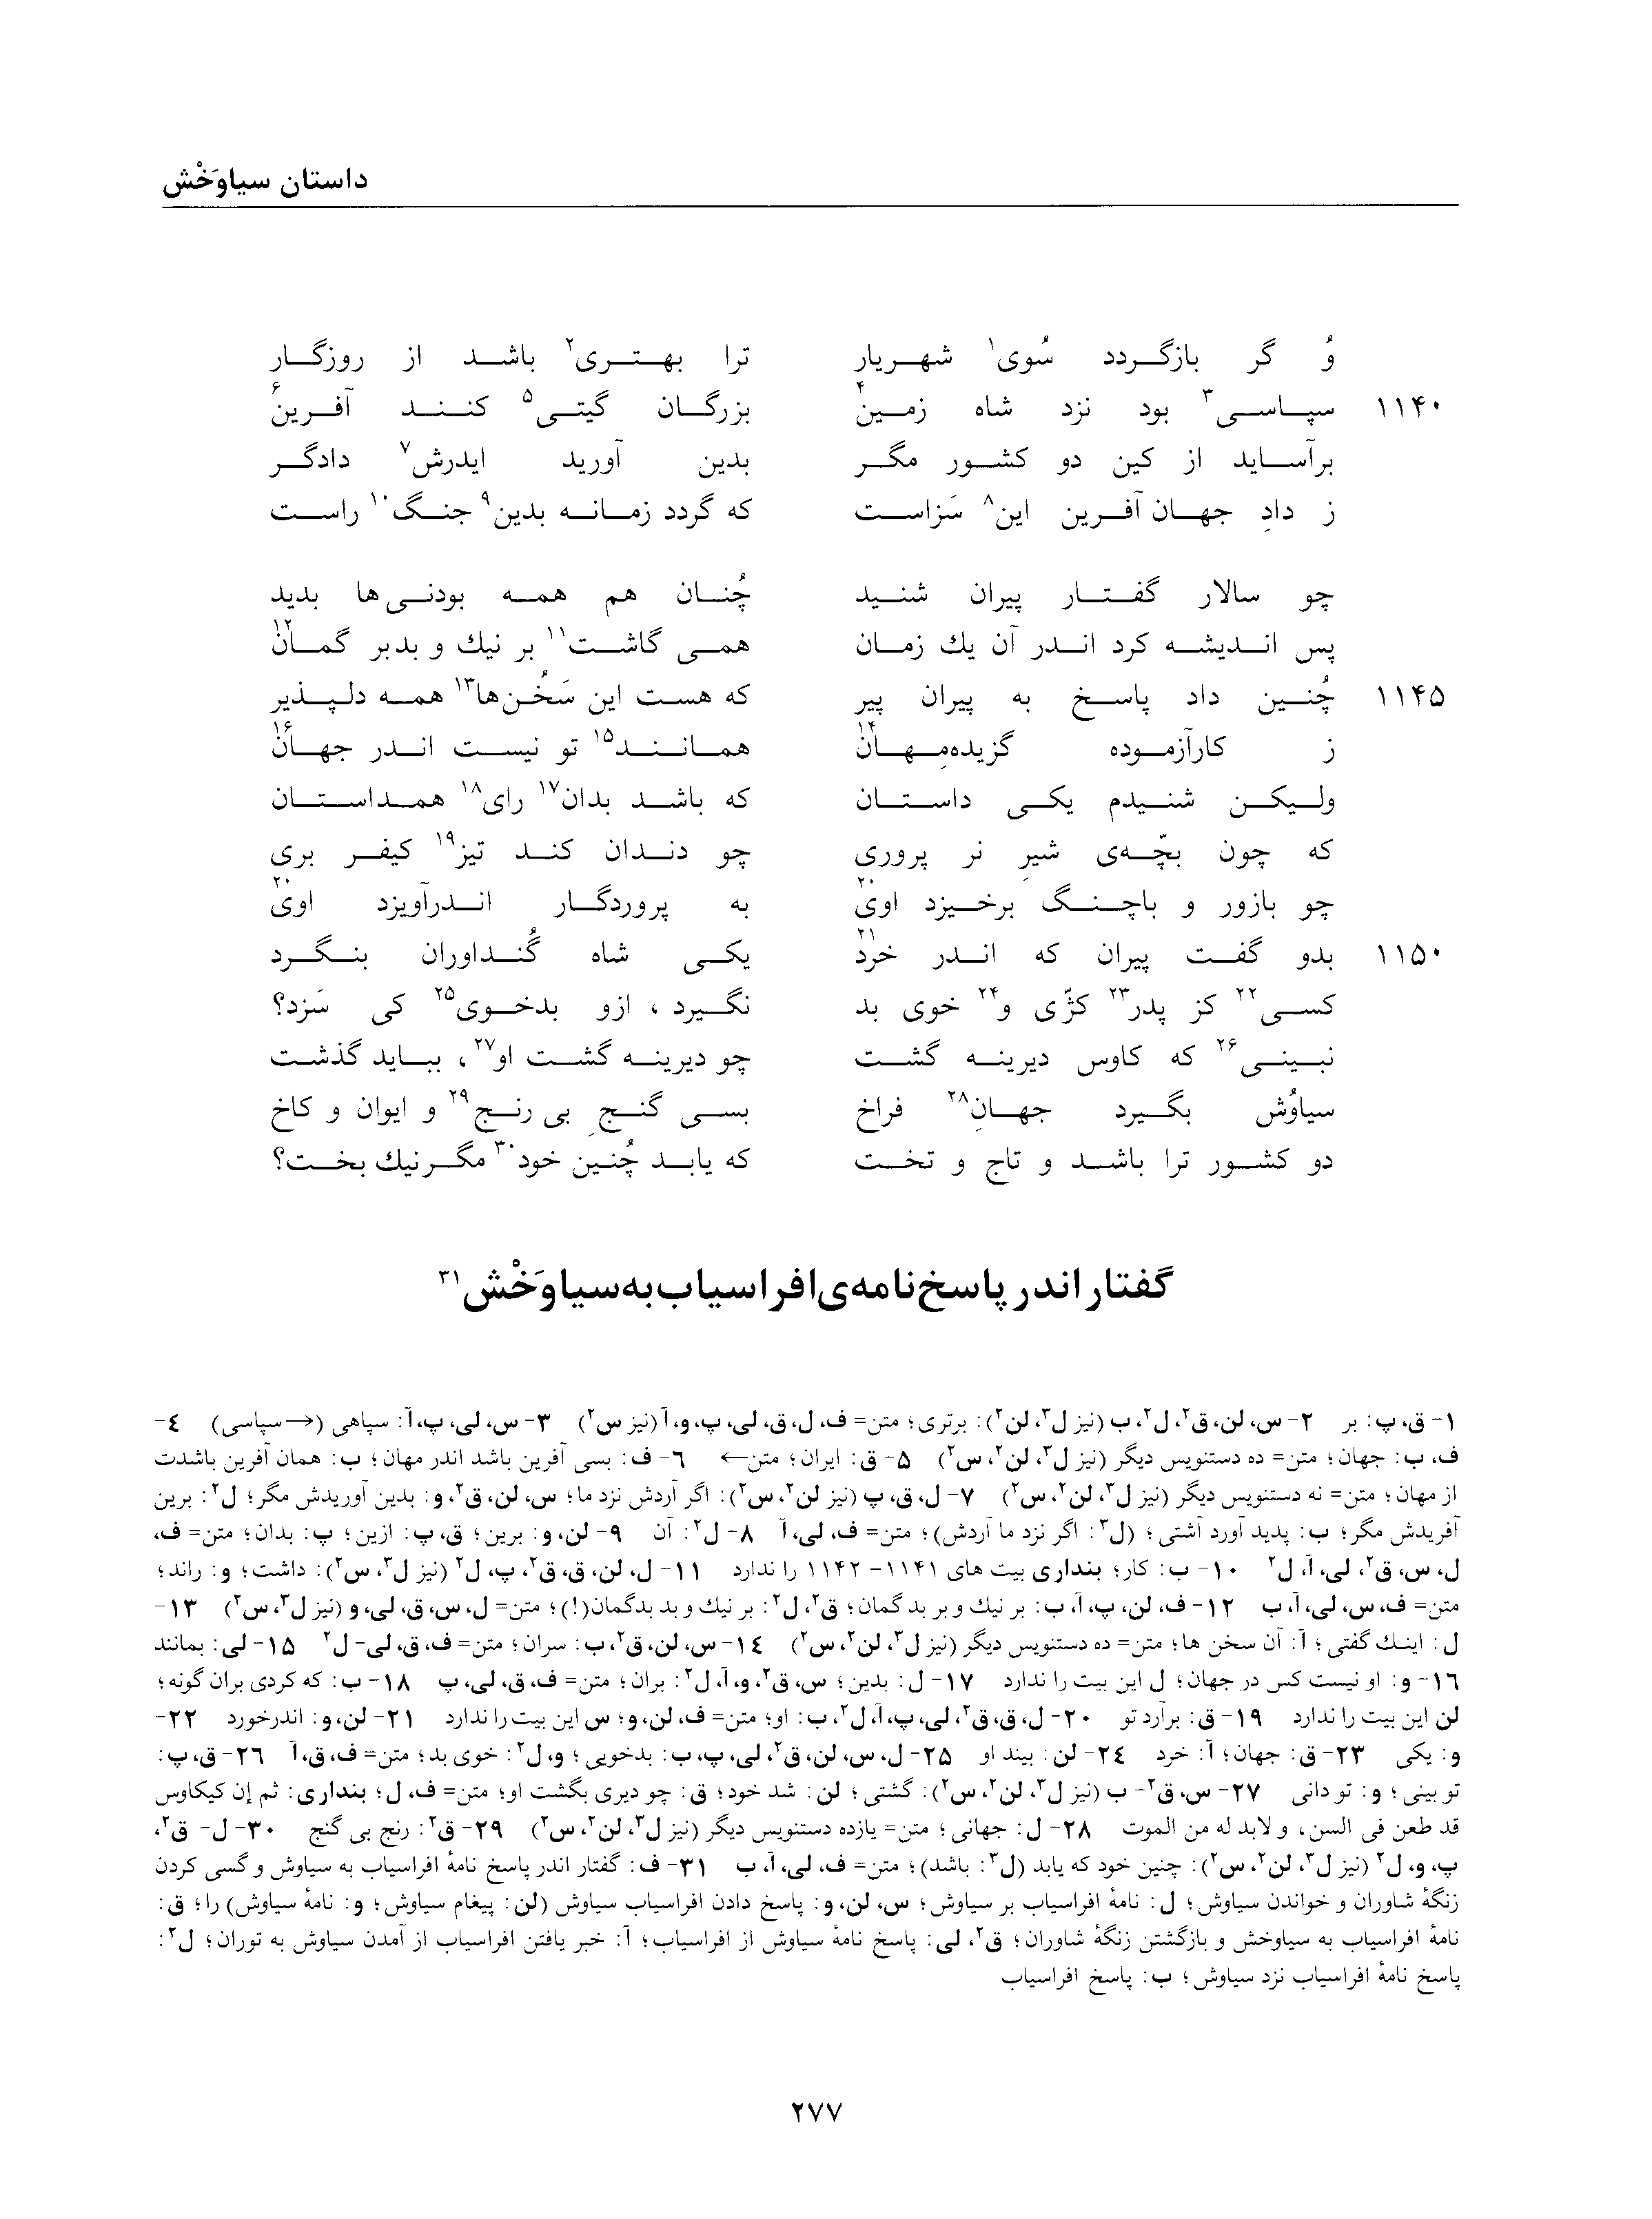 داستان سیاوَخْش
وُ گر بازگردد سُوی۱ شهریار ترا بهتری۲ باشد از روزگار
۱۱۴۰ سپاسی۳ بود نزد شاه زمین۴ بزرگان گیتی۵ کنند آفرین۶
برآساید از کین دو کشور مگر بدین آورید ایدرش۷ دادگر
ز دادِ جهان آفرین این۸ سَزاست که گردد زمانه بدین۹ جنگ۱۰ راست
چو سالار گفتار پیران شنید چُنان هم همه بودنی‌ها بدید
پس اندیشه کرد اندر آن یك زمان همی گاشت۱۱ بر نیك و بدبر گمان۱۲
۱۱۴۵ چُنین داد پاسخ به پیران پیر که هست این سَخُن‌ها۱۳ همه دلپذیر
ز کارآزموده گزیده‌مِهان۱۴ همانند۱۵ تو نیست اندر جهان۱۶
ولیکن شنیدم یکی داستان که باشد بدان۱۷ رای۱۸ همداستان
که چون بچّه‌ی شیرِ نر پروری چو دندان کند تیز۱۹ کیفر بری
چو بازور و باچنگ برخیزد اوی۲۰ به پروردگار اندرآویزد اوی۲۰
۱۱۵۰ بدو گفت پیران که اندر خرد۲۱ یکی شاه گُنداوران بنگرد
کسی۲۲ کز پدر۲۳ کژّی و۲۴ خوی بد نگیرد ، ازو بدخوی۲۵ کی سَزد؟
نبینی۲۶ که کاوس دیرینه گشت چو دیرینه گشت او۲۷، بباید گذشت
سیاوُش بگیرد جهانِ۲۸ فراخ بسی گنجِ بی رنج۲۹ و ایوان و کاخ
دو کشور ترا باشد و تاج و تخت که یابد چُنین خود۳۰ مگر نیك بخت؟
گفتار اندر پاسخ‌نامه‌ی افراسیاب به سیاوَخْش۳۱
۱- ق، پ: بر ۲- س، لن، ق۲، ل۲، ب (نیز ل۳، لن۲): برتری؛ متن= ف، ل، ق، لی، پ، و، آ (نیز س۲) ۳- س، لی، پ، آ: سپاهی (→سپاسی) ٤-
ف، ب: جهان؛ متن= ده دستنویس دیگر (نیز ل۳، لن۲، س۲) ۵- ق: ایران؛ متن← ٦- ف: بسی آفرین باشد اندر مهان؛ ب: همان آفرین باشدت
از مهان؛ متن= نه دستنویس دیگر (نیز ل۳، لن۲، س۲) ۷- ل، ق، پ (نیز لن۲، س۲): اگر آردش نزد ما؛ س، لن، ق۲، و: بدین آوریدش مگر؛ ل۲: برین
آفریدش مگر؛ ب: پدید آورد آشتی؛ (ل۳: اگر نزد ما آردش)؛ متن= ف، لی، آ ۸- ل۲: آن ۹- لن، و: برین؛ ق، پ: ازین؛ پ: بدان؛ متن= ف،
ل، س، ق۲، لی، آ، ل۲ ۱۰- ب: کار؛ بنداری بیت های ۱۱۴۱- ۱۱۴۲ را ندارد ۱۱- ل، لن، ق، ق۲، پ، ل۲ (نیز ل۳، س۲): داشت؛ و: راند؛
متن= ف، س، لی، آ، ب ۱۲- ف، لن، پ، آ، ب: بر نیك و بر بد گمان؛ ق۲، ل۲: بر نیك و بد بدگمان(!)؛ متن= ل، س، ق، لی، و (نیز ل۳، س۲) ۱۳-
ل: اینك گفتی؛ آ: آن سخن ها؛ متن= ده دستنویس دیگر (نیز ل۳، لن۲، س۲) ١٤- س، لن، ق۲، ب: سران؛ متن= ف، ق، لی- ل۲ ۱۵- لی: بمانند
۱٦- و: او نیست کس در جهان؛ ل این بیت را ندارد ۱۷- ل: بدین؛ س، ق۲، و، آ، ل۲: بران؛ متن= ف، ق، لی، پ ۱۸- ب: که کردی بران گونه؛
لن این بیت را ندارد ۱۹- ق: برآرد تو ۲۰- ل، ق، ق۲، لی، پ، آ، ل۲، ب: او؛ متن= ف، لن، و؛ س این بیت را ندارد ۲۱- لن، و: اندرخورد ۲۲-
و: یکی ۲۳- ق: جهان؛ آ: خرد ٢٤- لن: بیند او ۲۵- ل، س، لن، ق۲، لی، پ، ب: بدخویی؛ و، ل۲: خوی بد؛ متن= ف، ق، آ ۲٦- ق، پ:
تو بینی؛ و: تو دانی ۲۷- س، ق۲- ب (نیز ل۳، لن۲، س۲): گشتی؛ لن: شد خود؛ ق: چو دیری بگشت او؛ متن= ف، ل؛ بنداری: ثم إن کیکاوس
قد طعن فی السن، و لابد له من الموت ۲۸- ل: جهانی؛ متن= یازده دستنویس دیگر (نیز ل۳، لن۲، س۲) ۲۹- ق۲: رنج بی گنج ۳۰- ل- ق۲،
پ، و، ل۲ (نیز ل۳، لن۲، س۲): چنین خود که یابد (ل۳: باشد)؛ متن= ف، لی، آ، ب ۳۱- ف: گفتار اندر پاسخ نامهٔ افراسیاب به سیاوش و گسی کردن
زنگهٔ شاوران و خواندن سیاوش؛ ل: نامهٔ افراسیاب بر سیاوش؛ س، لن، و: پاسخ دادن افراسیاب سیاوش (لن: پیغام سیاوش؛ و: نامهٔ سیاوش) را؛ ق:
نامهٔ افراسیاب به سیاوخش و بازگشتن زنگهٔ شاوران؛ ق۲، لی: پاسخ نامهٔ سیاوش از افراسیاب؛ آ: خبر یافتن افراسیاب از آمدن سیاوش به توران؛ ل۲:
پاسخ نامهٔ افراسیاب نزد سیاوش؛ ب: پاسخ افراسیاب
۲۷۷